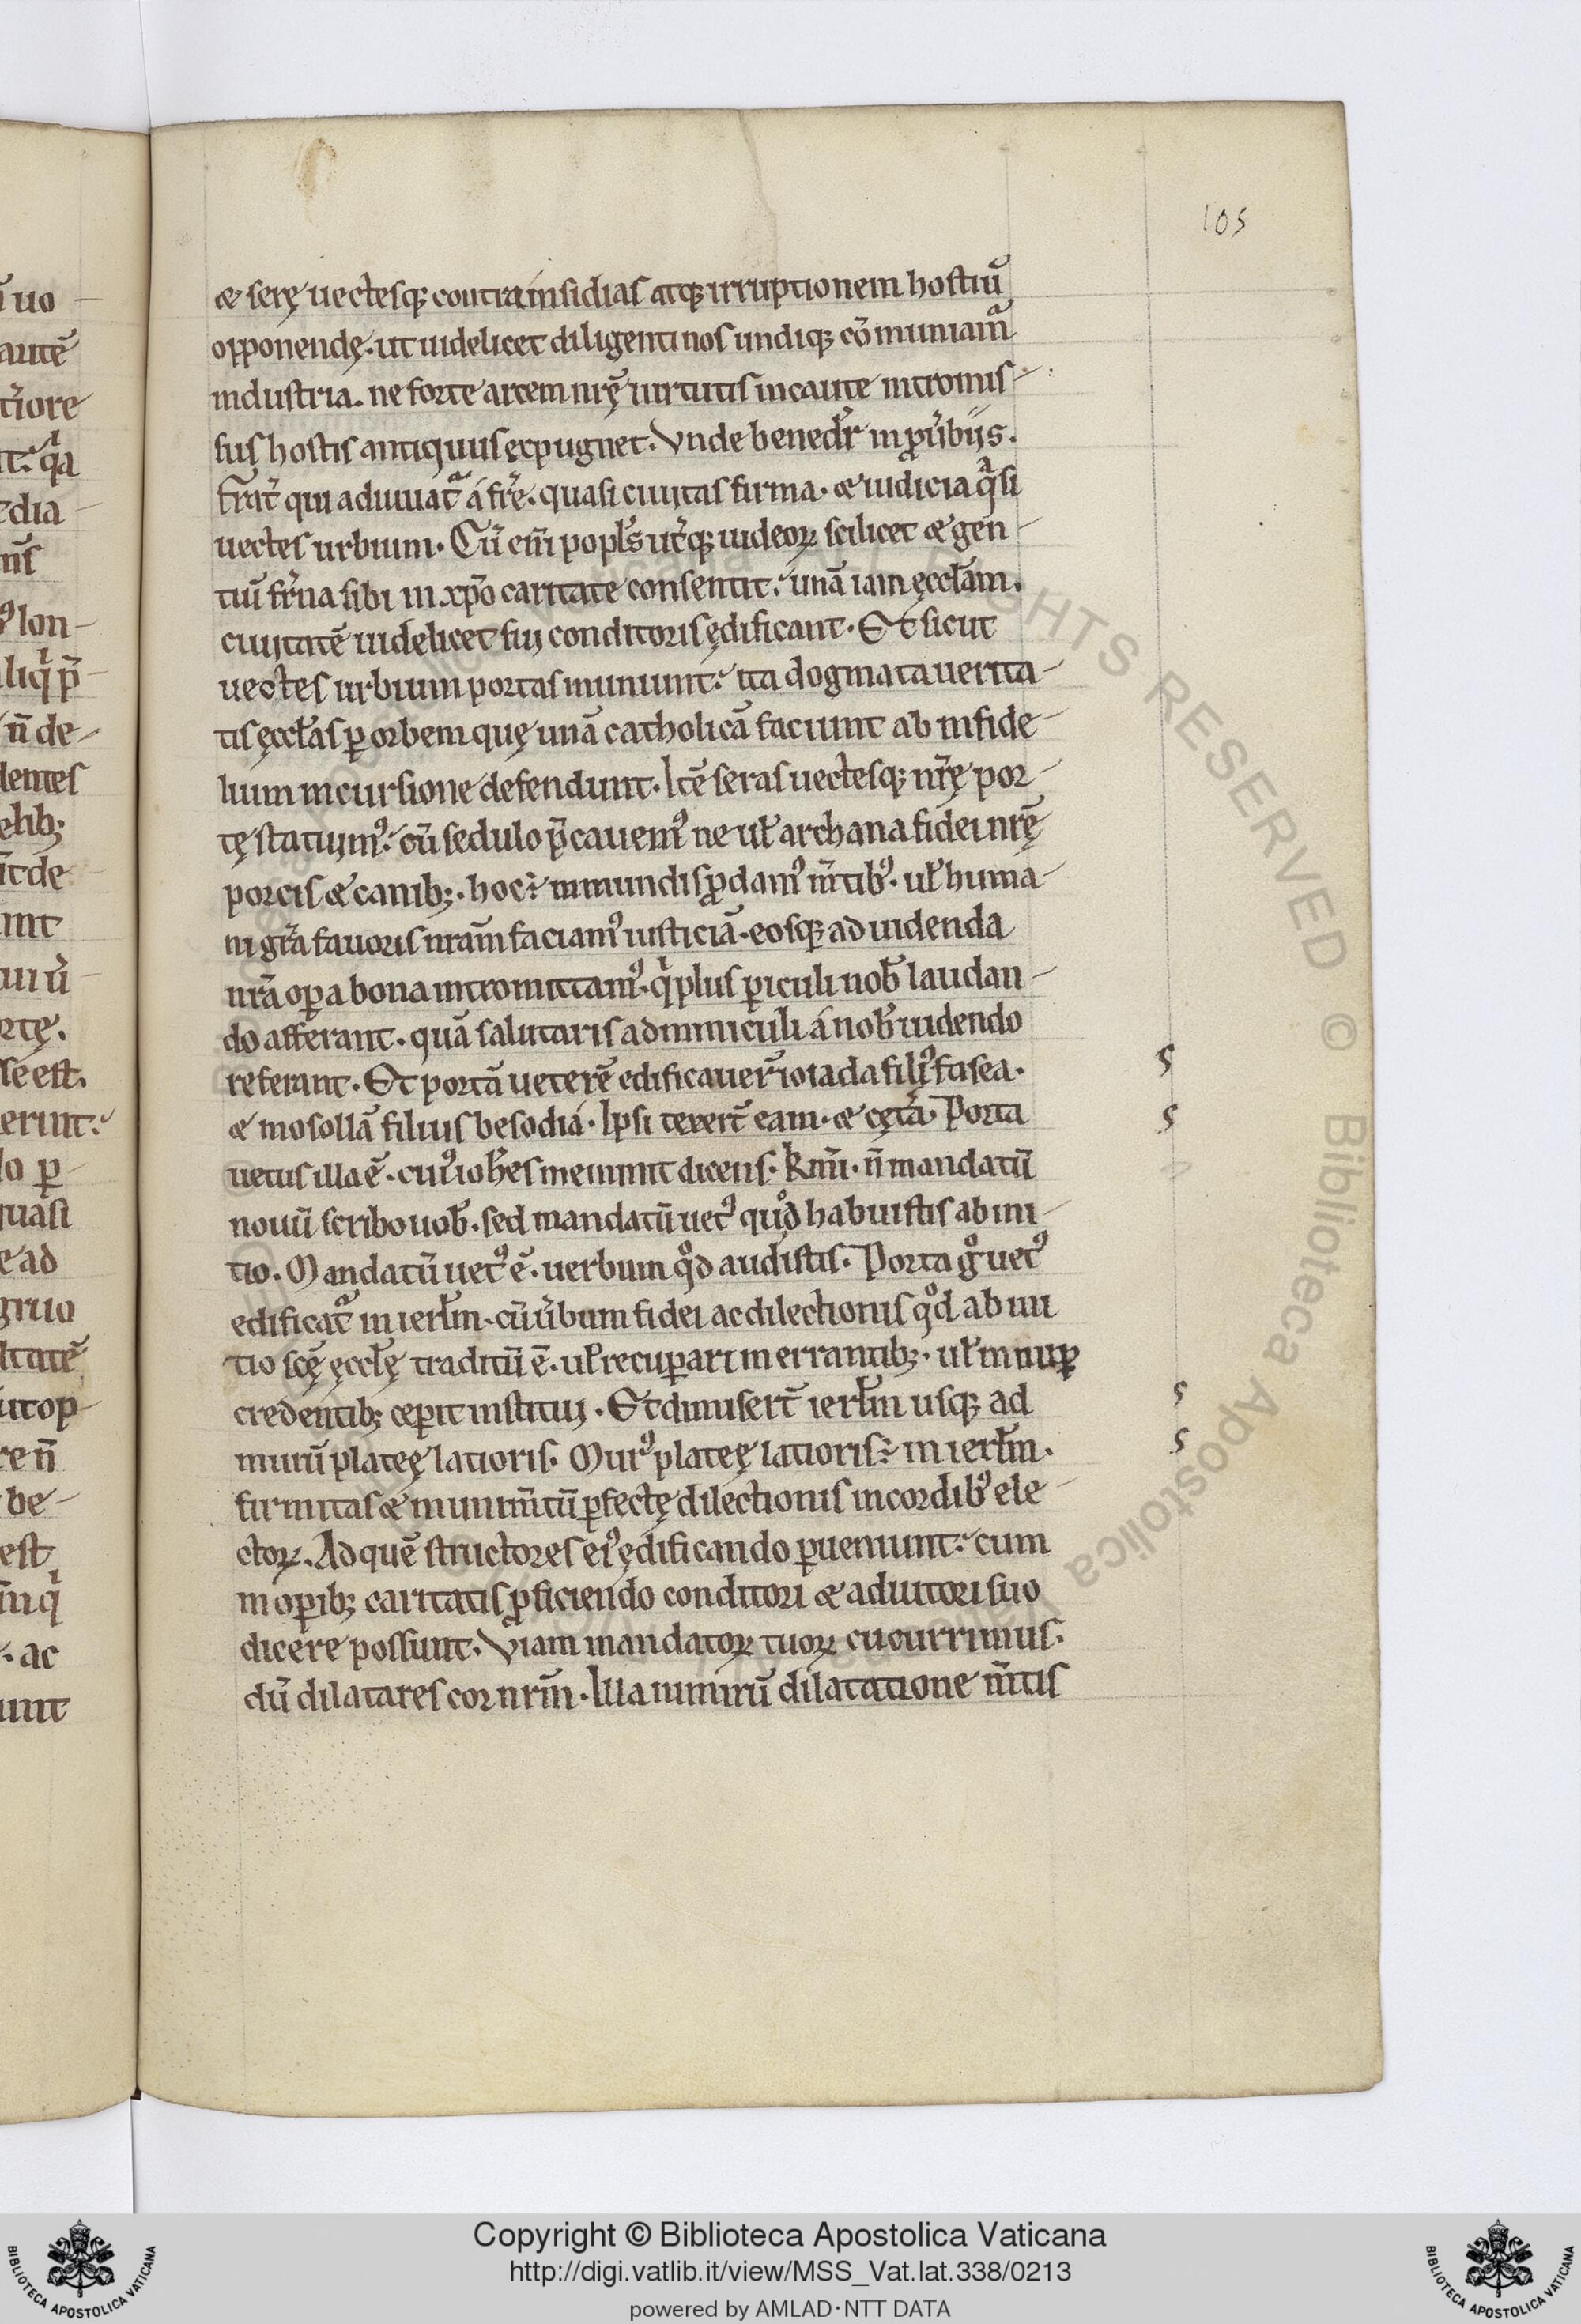 105
& serę uectesq; contra insidias atq; irruptionem hostiū
opponendę. ut uidelicet diligenti nos undiq; cōmuniam̃
industria. ne forte arcem nr̄ę uirtutis incaute intromis-
sus hostis antiquus expugnet. Vnde bene dr̄ in ꝓuerbijs.
Frat̄ qui adiuuat̄ á fr̄e. quasi ciuitas firma. & iudicia q̃si
uectes urbium. Cū eni̅ popl̄s ut̄q; iudeoꝝ scilicet & gen-
tiū fr̄na sibi in xp̄o caritate consentit. unā iam ęccl̄am.
ciuitatē uidelicet sui conditoris ędificant. Et sicut
uectes urbium portas muniunt. ita dogmata uerita-
tis ęccl̄as ꝑ orbem quę unā catholicā faciunt ab infide-
lium incursione defendunt. Itē seras uectesq; nr̄ę por-
tę statuim᾿. cū sedulo p̄cauem᾿ ne ul̄ archana fidei nr̄ę
porcis & canib;. hoc ÷ inmundis ꝓdam᾿ m̄tib᾿. ul̄ huma-
ni gr̄a fauoris nr̄am faciam᾿ iusticiā. eosq; ad uidenda
nr̄a oꝑa bona intromittam᾿. qͥ plus ꝑiculi nob̄ laudan-
do afferant. quā salutaris adminiculi á nob̄ uidendo
referant. Et portā ueterē edificauer̄ ioiada fili᾿ fasea.
& mosollā filius besodia. Ipsi texer̄t eam. & cęt̄a. Porta
uetus illa ē. cui᾿ ioh̄es meminit dicens. Kmi̅. n̄ mandatū
nouū scribo uob̄. sed mandatū uet᾿ quͦd habuistis ab ini-
tio. Mandatū uet᾿ ē. uerbum qͦd audistis. Porta gͦ uet᾿
edificat̃ in ierl̄m. cū ūbum fidei ac dilectionis qͦd ab ini
tio sc̄ę ęccl̄ę traditū ē. ul̄ recuꝑari in errantib;. ul̄ in nuꝑ
credentib; ceperit institui. Et dimiser̄t ierl̄m usq; ad
murū plateę latioris. Mur᾿ plateę latioris ÷ in ierl̄m.
firmitas & munim̄tū ꝑfectę dilectionis in cordib᾿ ele-
ctoꝝ. Ad quē structores ei᾿ ędificando ꝑueniunt. cum
in oꝑib; caritatis ꝓficiendo conditori & adiutori suo
dicere possunt. Viam mandatoꝝ tuoꝝ cucurrimus.
dū dilatares cor nr̄m. Illa nimirū dilatatione m̄tis
Copyright © Biblioteca Apostolica Vaticana
http://digi.vatlib.it/view/MSS_Vat.lat.338/0213
powered by AMLAD·NTT DATA